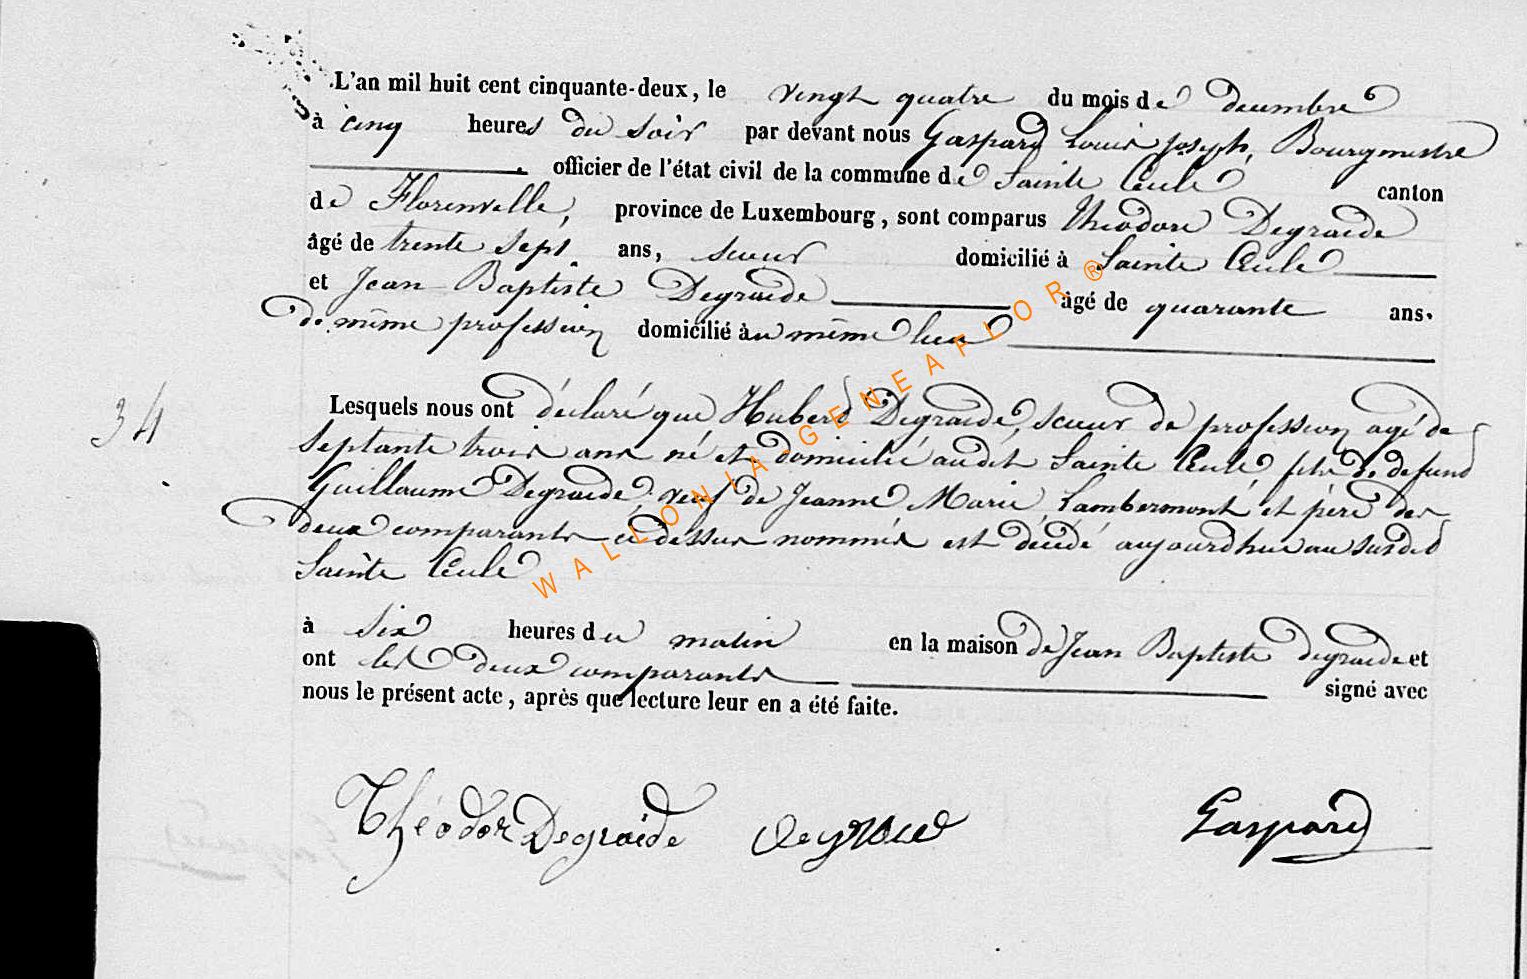 L'an mil huit cent cinquante-deux, le vingt quatre du mois de decembre
à cinq heures du soir par devant nous Gaspard Louis Joseph, Bourgmestre
officier de l'état civil de la commune de Sainte Cecile canton
de Florenville, province de Luxembourg, sont comparus Théodore Degraide
âgé de trente sept ans, scieur domicilié à Sainte Cecile
et Jean Baptiste Degraide âgé de quarante ans.
de même profession domicilié au même lieu
34
Lesquels nous ont déclaré que Hubert Degraide, scieur de profession agé de
septante trois ans né et domicilié audit Sainte Cecile fils de defunt
Guillaume Degraide veuf de Jeanne Marie Lambermont et père des
deux comparants ci dessus nommés est décédé aujourdhui au susdit
Sainte Cecile
à six heures du matin en la maison de Jean Baptiste degraide et
ont les deux comparants signé avec
nous le présent acte, après que lecture leur en a été faite.
Théodor Degraide Gaspard
WALLONIA-GENEAFLOR®